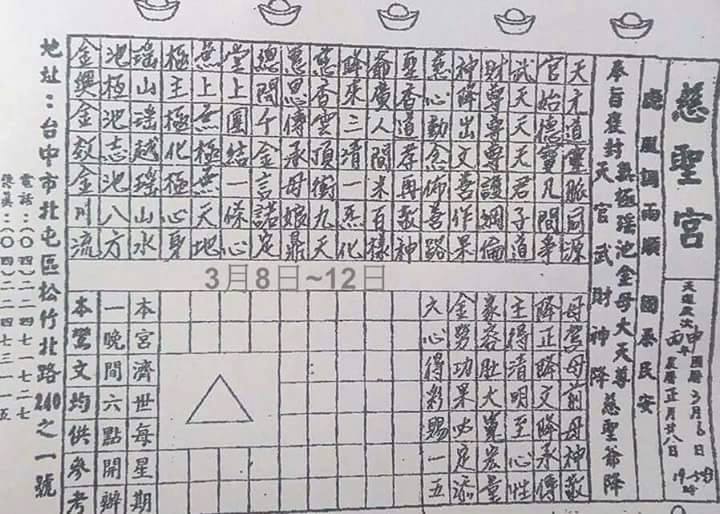 慈聖宮
天運歲次丙申年
國曆3月6日
農曆正月廿八日
風調雨順 國泰民安
奉旨褒封 無極瑤池金母大天尊 慈聖爺降
天官武財神降
天元道靈脈同源
官始德寶凡間爭
武天天無君子道
財尊尊尊護綱倫
神降出文善作果
慈心動念佈善路
聖香道孝再敬神
爺廣人間米百樣
降來三清一炁化
慈香雲頂衝九天
恩思傳承母娘鼎
總問個金言諾定
堂上團結一條心
無上無極無天地
極主極化極心身
瑤山瑤越瑤山水
池極池志池八方
金奧金敘金川流
3月8日~12日
母鸞母前母神敬
降正降文降承傳
主得清明至心性
豪容肚大寬宏量
金勞功果必定添
六心得彩賜一五
本宮濟世每星期
一晚間六點開辦
本鸞文均供參考
地址：台中市北屯區松竹北路240之一號
電話：(〇四)二二四七一七二七
傳真：(〇四)二二四七三一一五